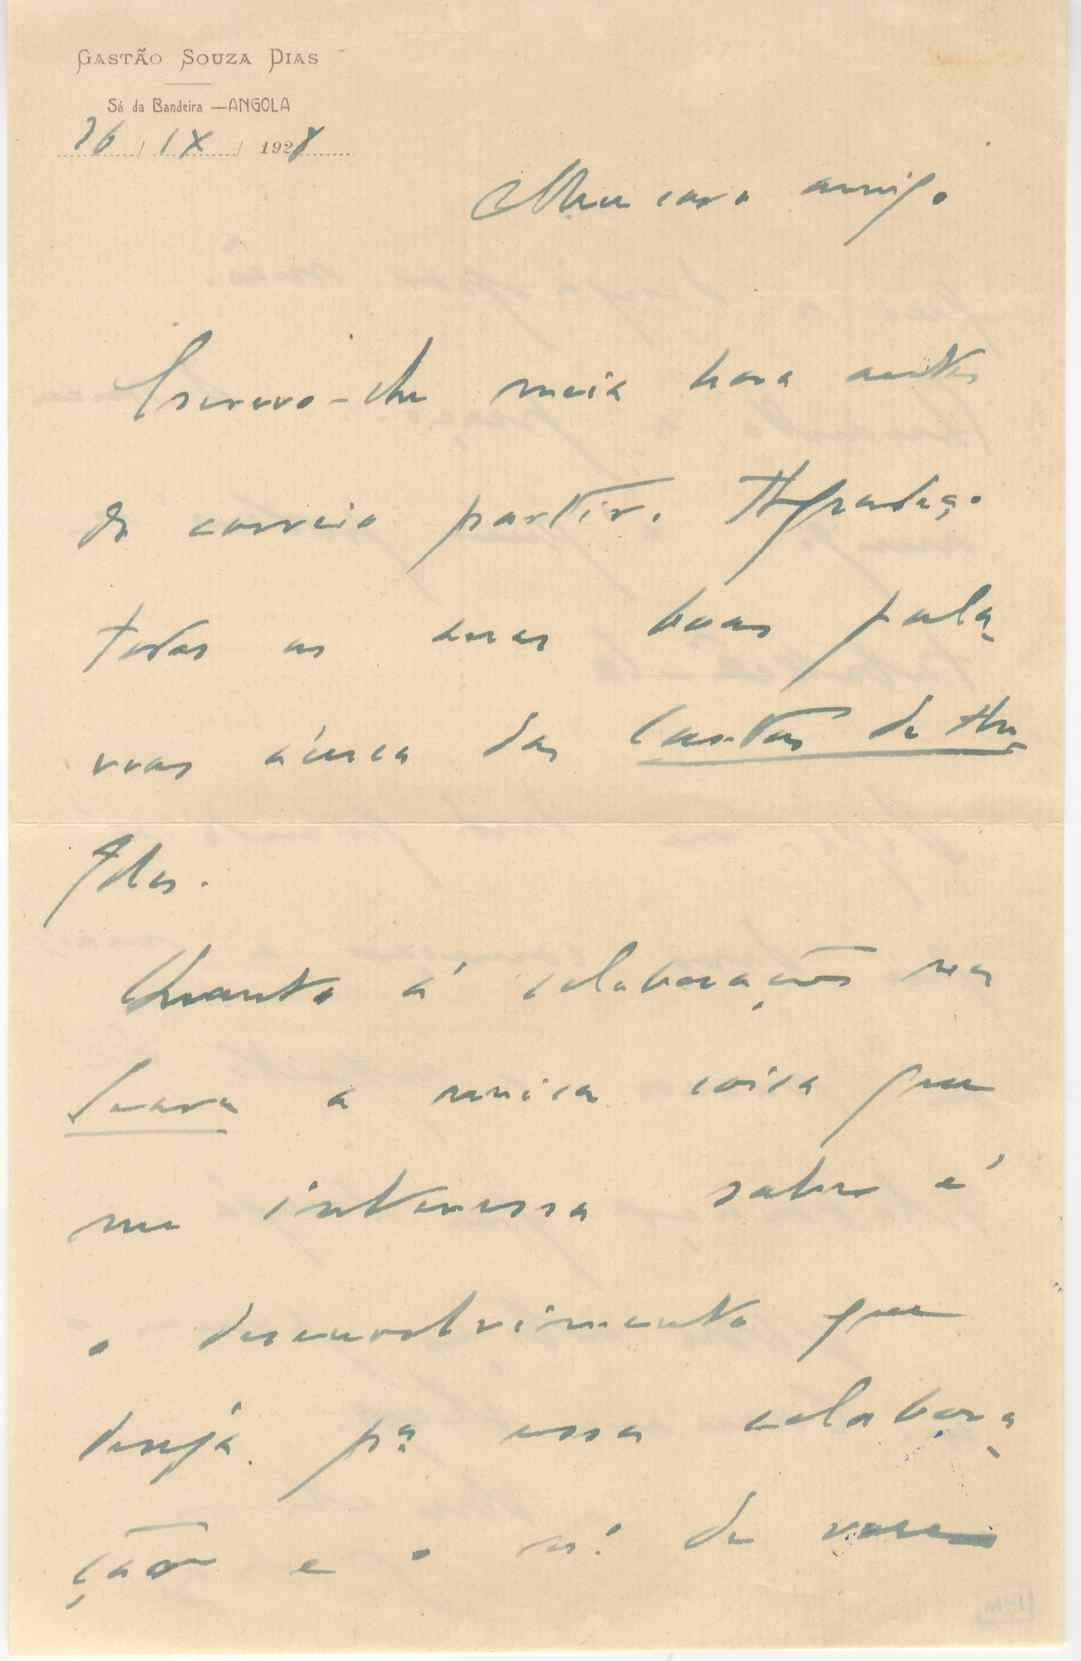 GASTÃO SOUZA DIAS
Sá da Bandeira —ANGOLA
26 / IX / 1928
Meu caro amigo
Escrevo-lhe meia hora antes
do correio partir. Agradeço
todas as suas boas pala-
vras ácerca das Cartas de An-
gola.
Quanto á colaboração na
Seara a unica coisa que
me interessa saber é
o desenvolvimento que
deseja pª essa colabora-
ção e o nº de